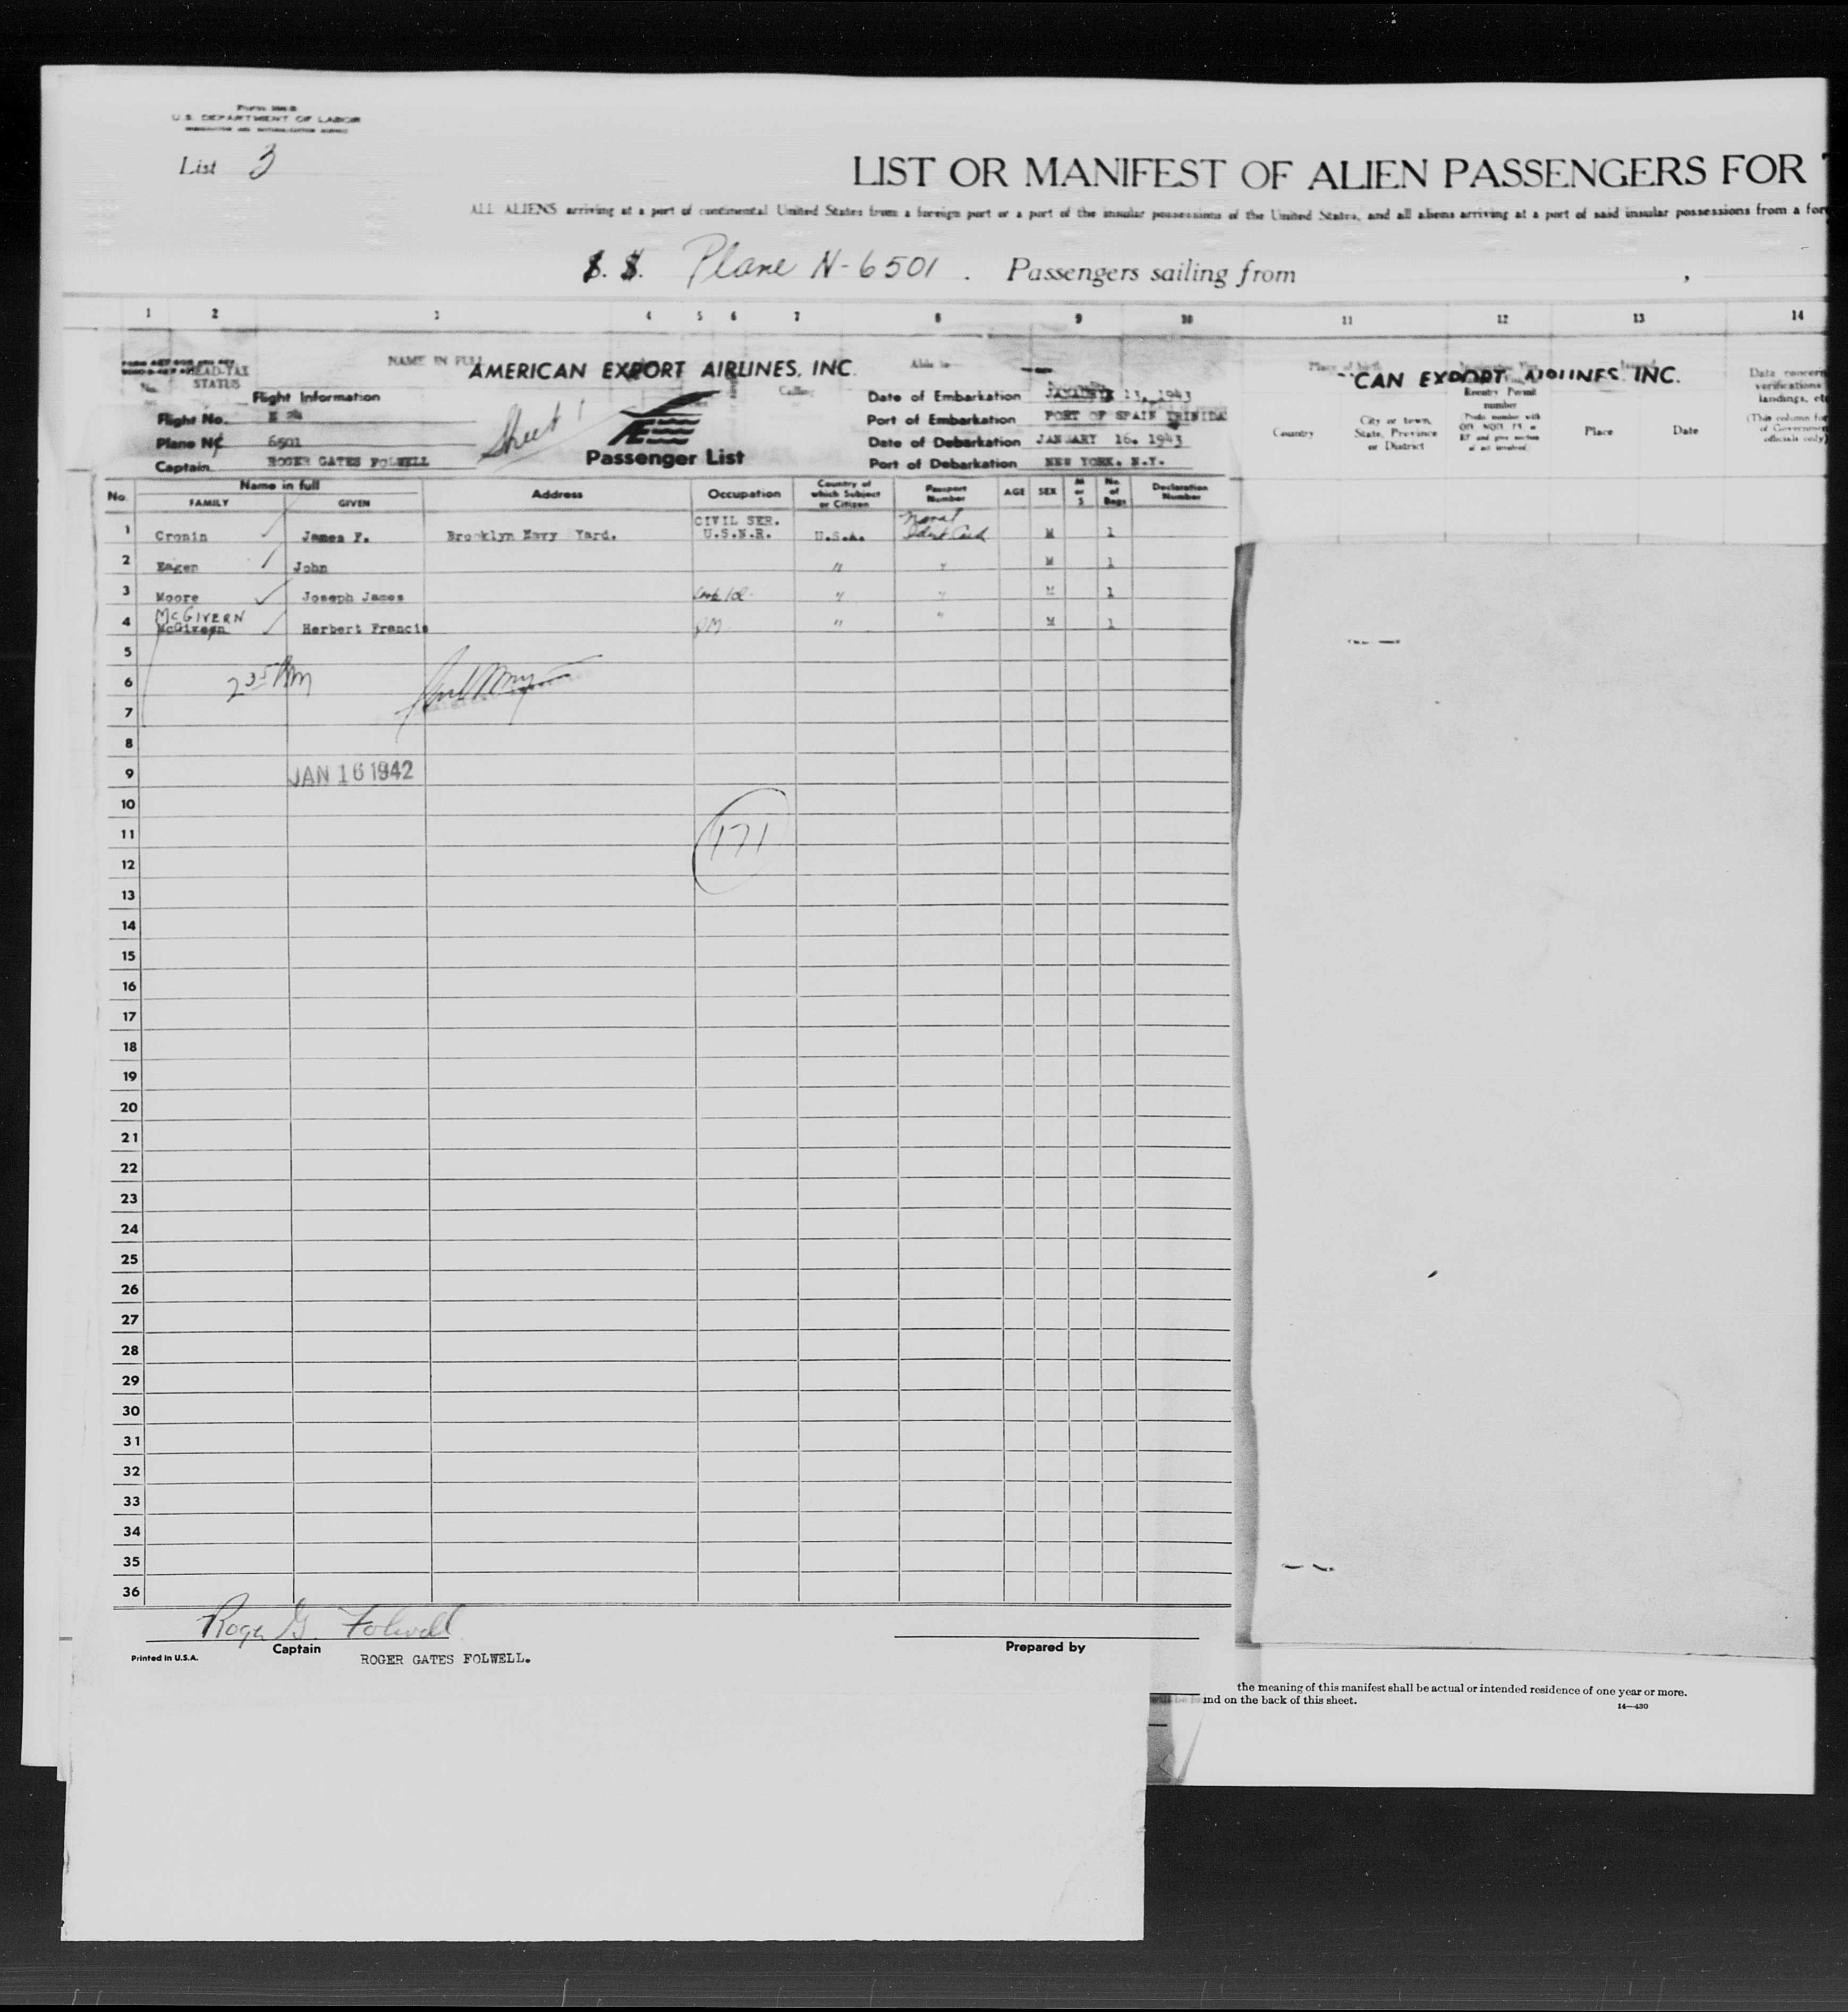 U.S. DEPARTMENT OF LABOR
List 3
LIST OR MANIFEST OF ALIEN PASSENGERS FOR
ALL ALIENS arriving at a port of continental United States from a foreign port or a port of the insular possessions of the United States, and all aliens arriving at a port of said insular possessions from a for
S. S. Plane N-6501. Passengers sailing from ,
1 2 3 4 5 6 7 8 9 10 11 12 13 14
HEAD-TAX STATUS
NAME IN FULL
AMERICAN EXPORT AIRLINES, INC.
CAN EXPORT AIRLINES, INC.
Flight Information
Flight No. E 24
Plane No. 6501
Captain ROGER GATES FOLWELL
Sheet 1
Passenger List
Date of Embarkation JANUARY 13, 1943
Port of Embarkation PORT OF SPAIN TRINIDA
Date of Debarkation JANUARY 16. 1943
Port of Debarkation NEW YORK. N.Y.
Country
City or town, State, Province or District
Reentry Permit number
Place
Date
Data concern
verifications
landings, etc
(This column for
of Government
officials only)
No. Name in full FAMILY GIVEN Address Occupation Country of which Subject or Citizen Passport Number AGE SEX M or S No. of Bags Declaration Number
1 Cronin James F. Brooklyn Navy Yard. CIVIL SER. U.S.N.R. U.S.A. Naval Ident Card M 1
2 Eagen John " " M 1
3 Moore Joseph James " " M 1
4 McGIVERN Herbert Francis " " M 1
5
6
7
8
9 JAN 16 1942
10
11 171
12
13
14
15
16
17
18
19
20
21
22
23
24
25
26
27
28
29
30
31
32
33
34
35
36
Roger G. Folwell
Captain
Prepared by
Printed in U.S.A.
ROGER GATES FOLWELL.
the meaning of this manifest shall be actual or intended residence of one year or more.
and on the back of this sheet.
14—430